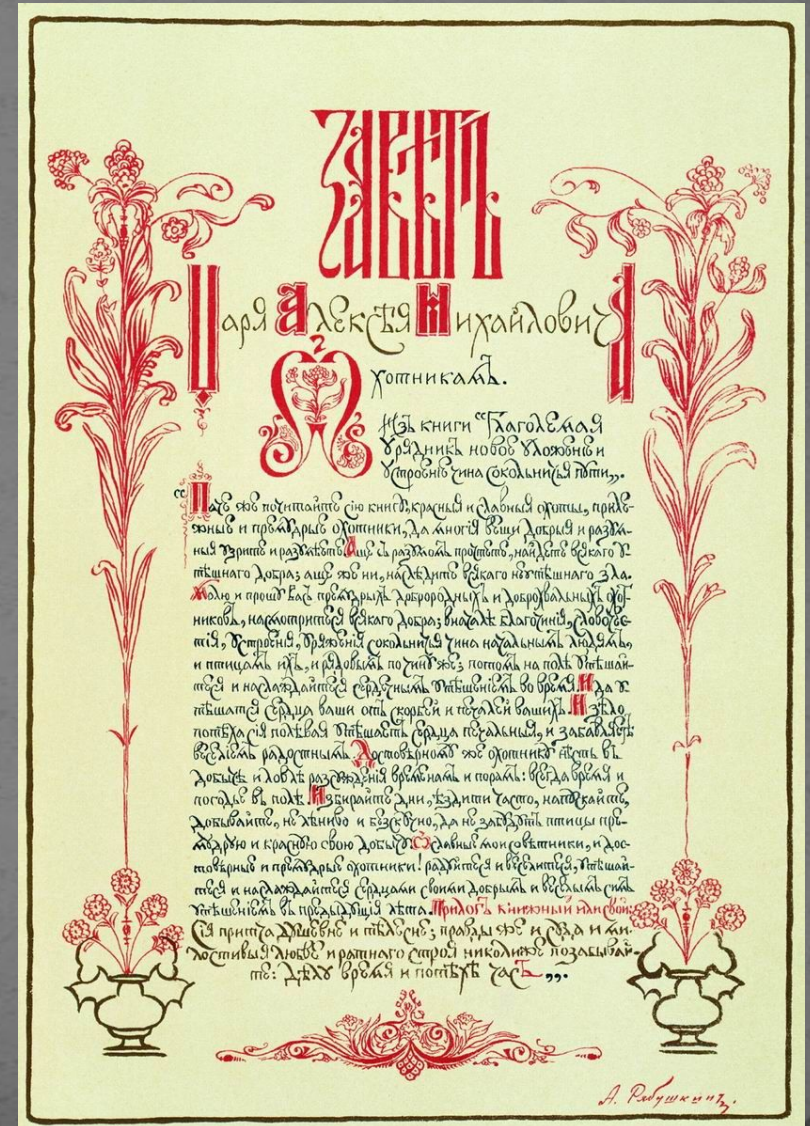 Завѣтъ
Царя Алексѣя Михайловича
охотникамъ.
Изъ книги “Глаголемая
Урядникъ новое уложенiе и
устроенiе чина сокольничья пути„.
“Паче же почитайте сiю книгу, красныя и славныя охоты, приле-
жные и премудрые охотники, да многiя вещи добрыя и разум-
ныя узрите и разумѣете. Аще съ разумомъ прочтете, найдете всякаго у-
тѣшнаго добра; аще же ни, наслѣдите всякаго неутѣшнаго зла.
Молю и прошу васъ премудрыхъ, доброродныхъ и доброхвальныхъ охот-
никовъ, насмотритеся всякаго добра; вначалѣ благочинiя, славоче-
стiя, устроенiя, уряженiя сокольничья чина начальнымъ людямъ,
и птицамъ ихъ, и рядовымъ по чину же; потомъ на полѣ утѣшай-
теся и наслаждайтеся сердечнымъ утѣшенiемъ во время. И да у-
тѣшатся сердца ваши отъ скорбей и печалей вашихъ. И зѣло
потѣха сiя полѣвая утѣшаетъ сердца печальныя, и забавляетъ
веселiемъ радостнымъ. Достовѣрному же охотнику нѣсть въ
добычѣ и ловлѣ разсужденiя временамъ и порамъ: всегда время и
погодье въ полѣ. Избирайте дни, ѣздите часто, напускайте,
добывайте, не лѣниво и безскучно, да не забудутъ птицы пре-
мудрую и красную свою добычу. О славные мои совѣтники, и дос-
товѣрные и премудрые охотники! радуйтеся и веселитеся, утѣшай-
теся и наслаждайтеся сердцами своими добрымъ и веселымъ симъ
утѣшенiемъ въ предыдущiя лѣта. Прилогъ книжный или свой:
Сiя притча душевне и тѣлесне; правды же и суда и ми-
лостивыя любве и ратнаго строя николиже позабывай-
те: дѣлу время и потѣхѣ часъ„.
А. Рябушкинъ.